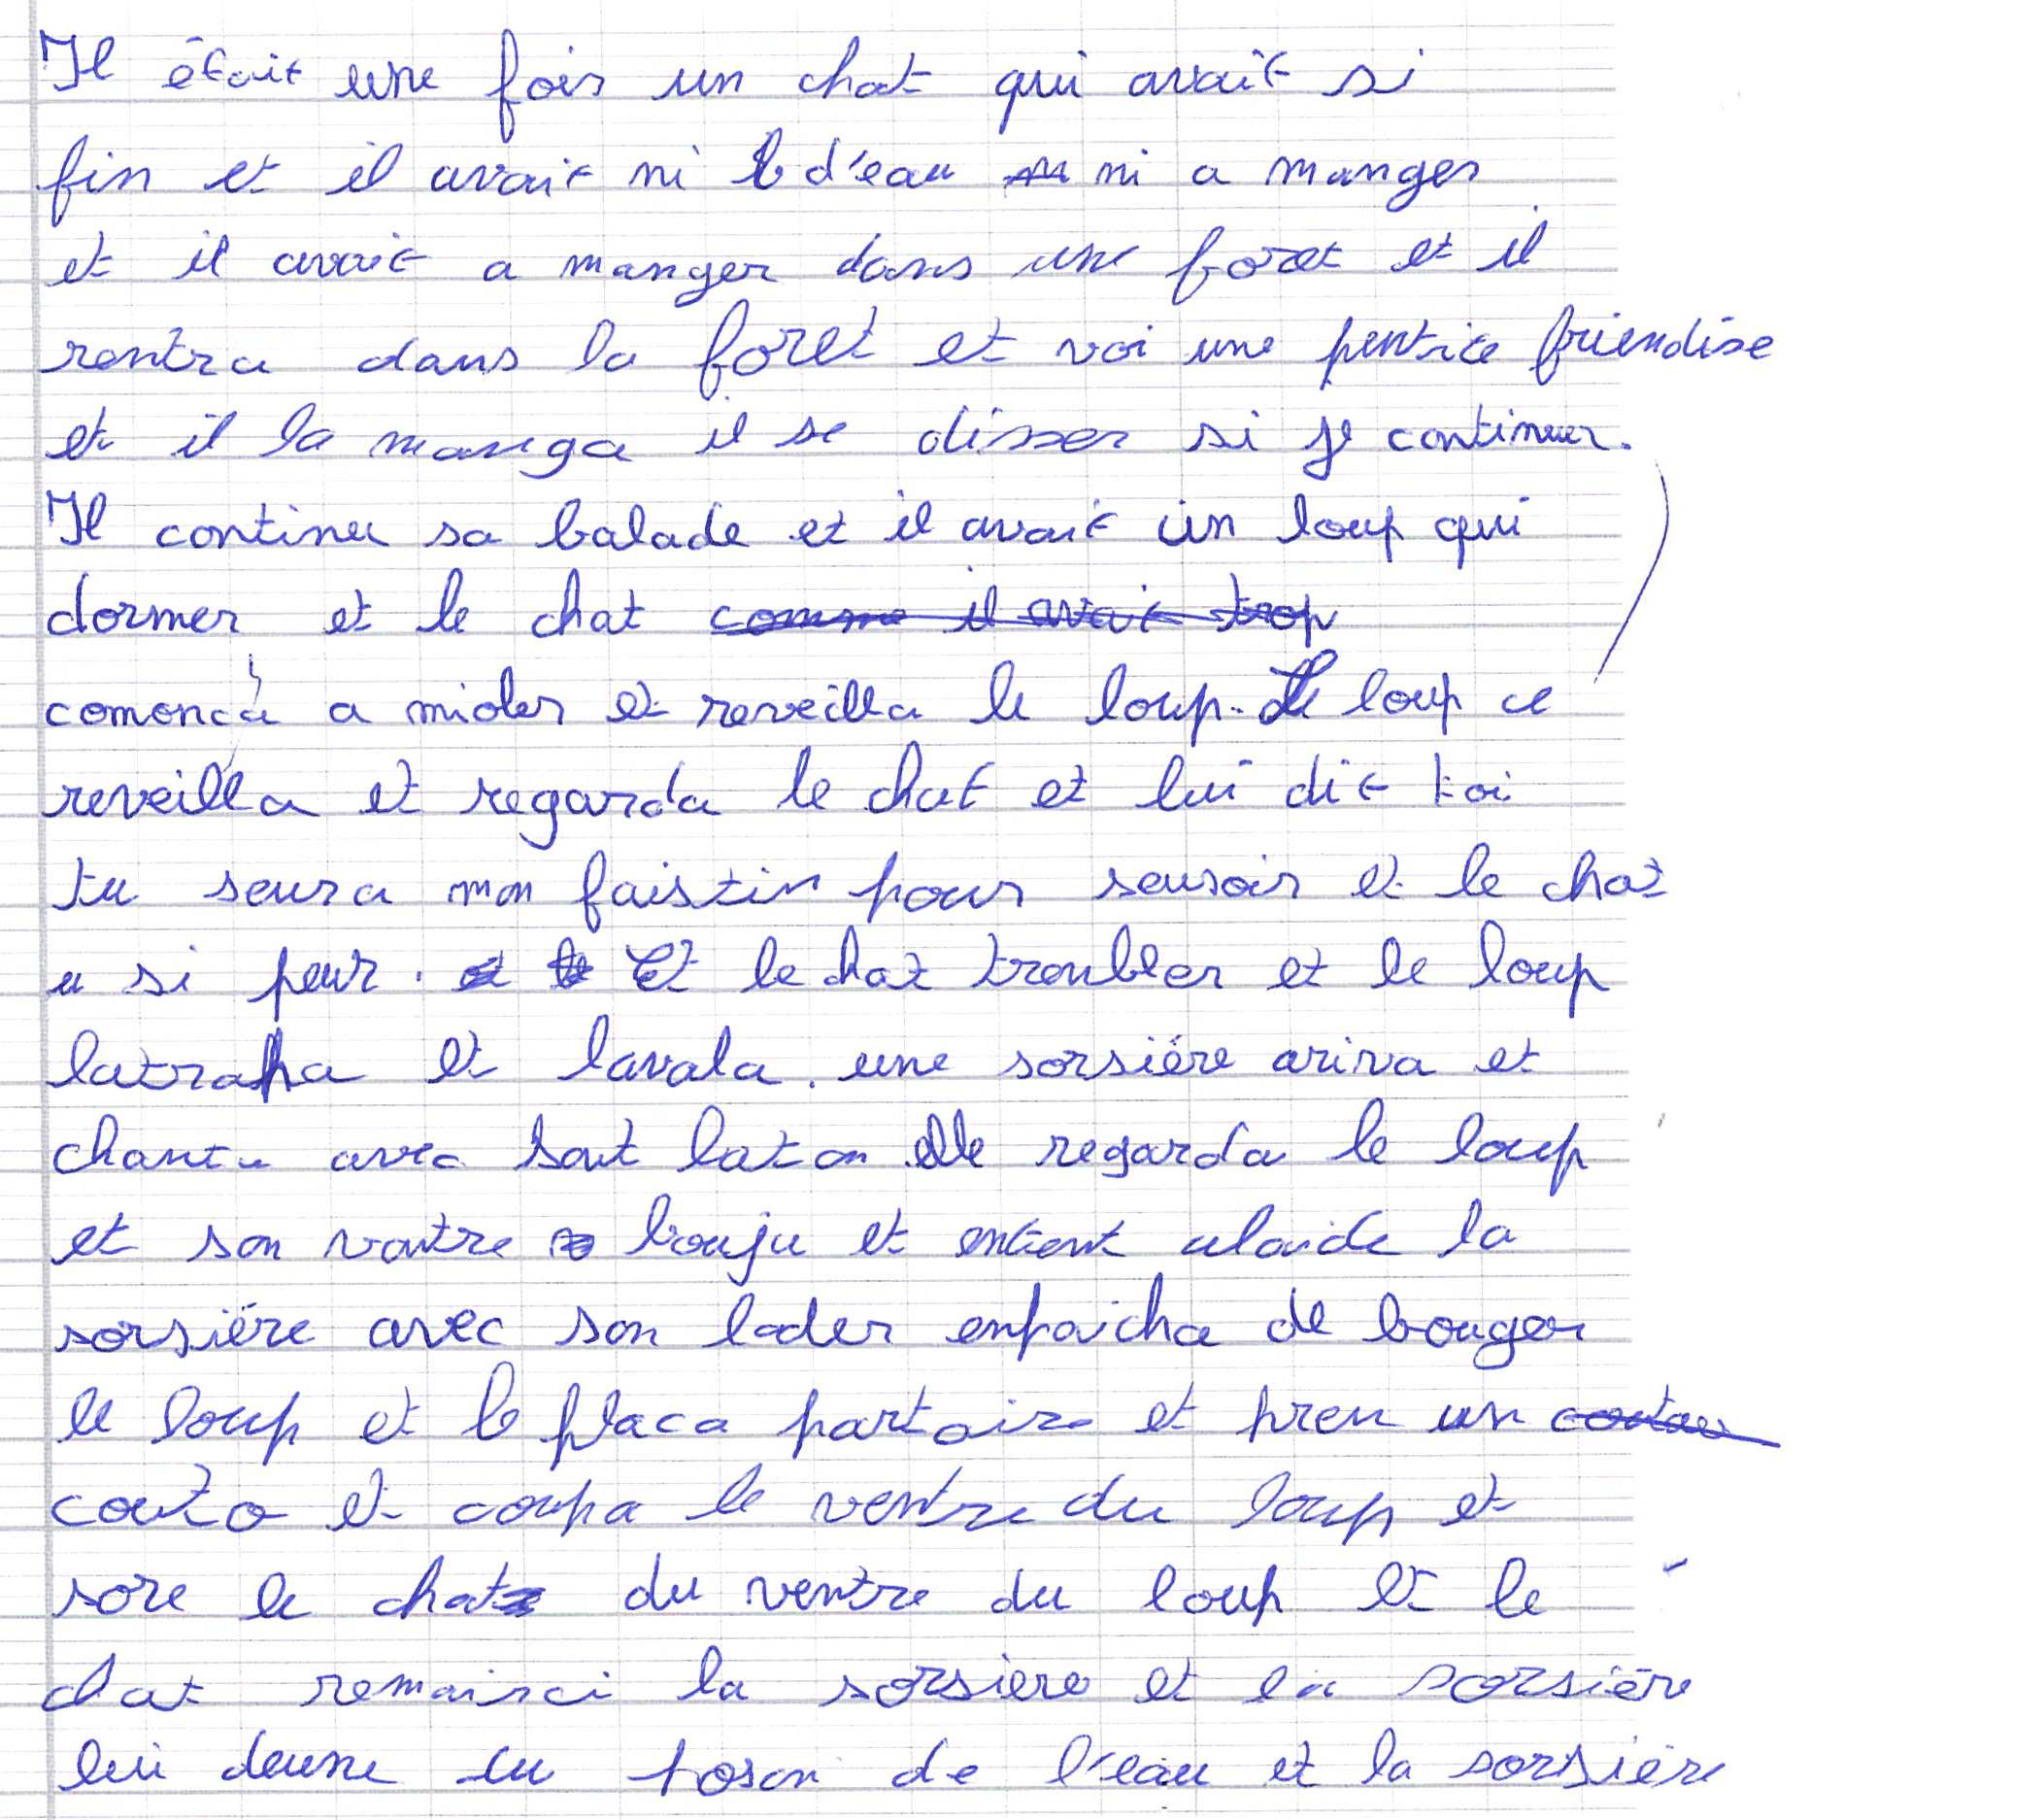 Il était une fois un chat qui avait si
fin et il avait ni d'eau ni a manger
et il avait a manger dans une foret et il
rentra dans la foret et voi une pentite friendise
et il la manga il se disser si je continuer.
Il continu sa balade et il avait un loup qui
dormer et le chat comme il avait trop
comonca a mioler et reveilla le loup. Le loup ce
reveilla et regarda le chat et lui dit toi
tu seura mon faistin pour seusoir et le chat
u si peur. Et le chat trembler et le loup
latrapa et lavala. une sorsière ariva et
chanta avec sont laton elle regarda le loup
et son vantre bouju et entent alaide la
sorsière avec son lader enpaicha de bouger
le loup et le placa partaire et pren un
couto et coupa le ventre du loup et
sore le chat du ventre du loup et le
chat remairci la sorsiere et la sorsière
lui deune cu poson de l'eau et la sorsière